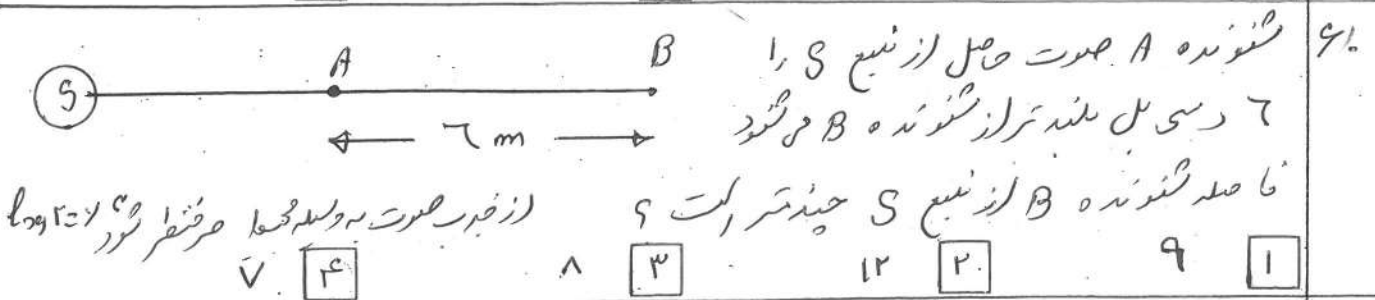 ۶۱. شنونده A صوت حاصل از منبع S را
۶ دسی بل بلندتر از شنونده B می شنود
S A B
۶ m
فاصله شنونده B از منبع S چند متر است ؟ از جذب صوت به وسیله محیط صرفنظر شود log۲=۰/۳
۱ ۹ ۲ ۱۲ ۳ ۸ ۴ ۷